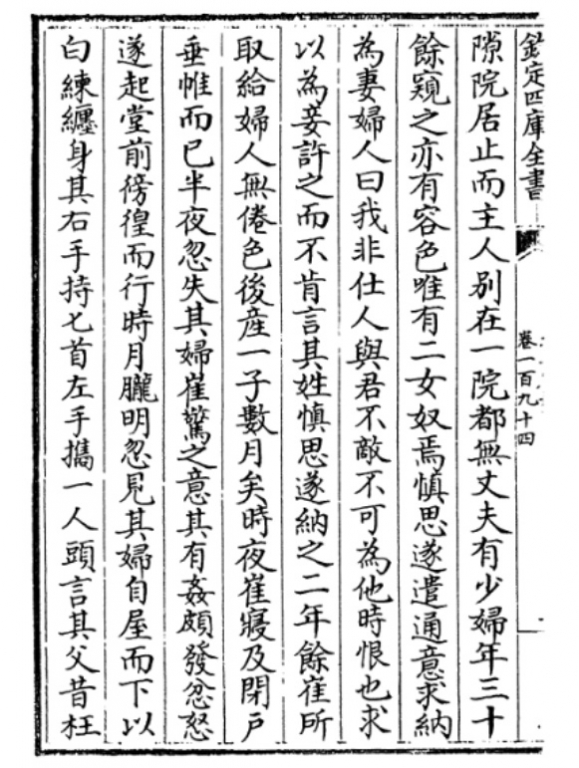 欽定四庫全書
卷一百九十四
隙院居止而主人别在一院都無丈夫有少婦年三十
餘窺之亦有容色唯有二女奴焉慎思遂遣通意求納
為妻婦人曰我非仕人與君不敵不可為他時恨也求
以為妾許之而不肯言其姓慎思遂納之二年餘崔所
取給婦人無倦色後產一子數月矣時夜崔寢及閉戶
垂帷而已半夜忽失其婦崔驚之意其有姦頗發忿怒
遂起堂前徬徨而行時月朧明忽見其婦自屋而下以
白練纏身其右手持匕首左手攜一人頭言其父昔枉